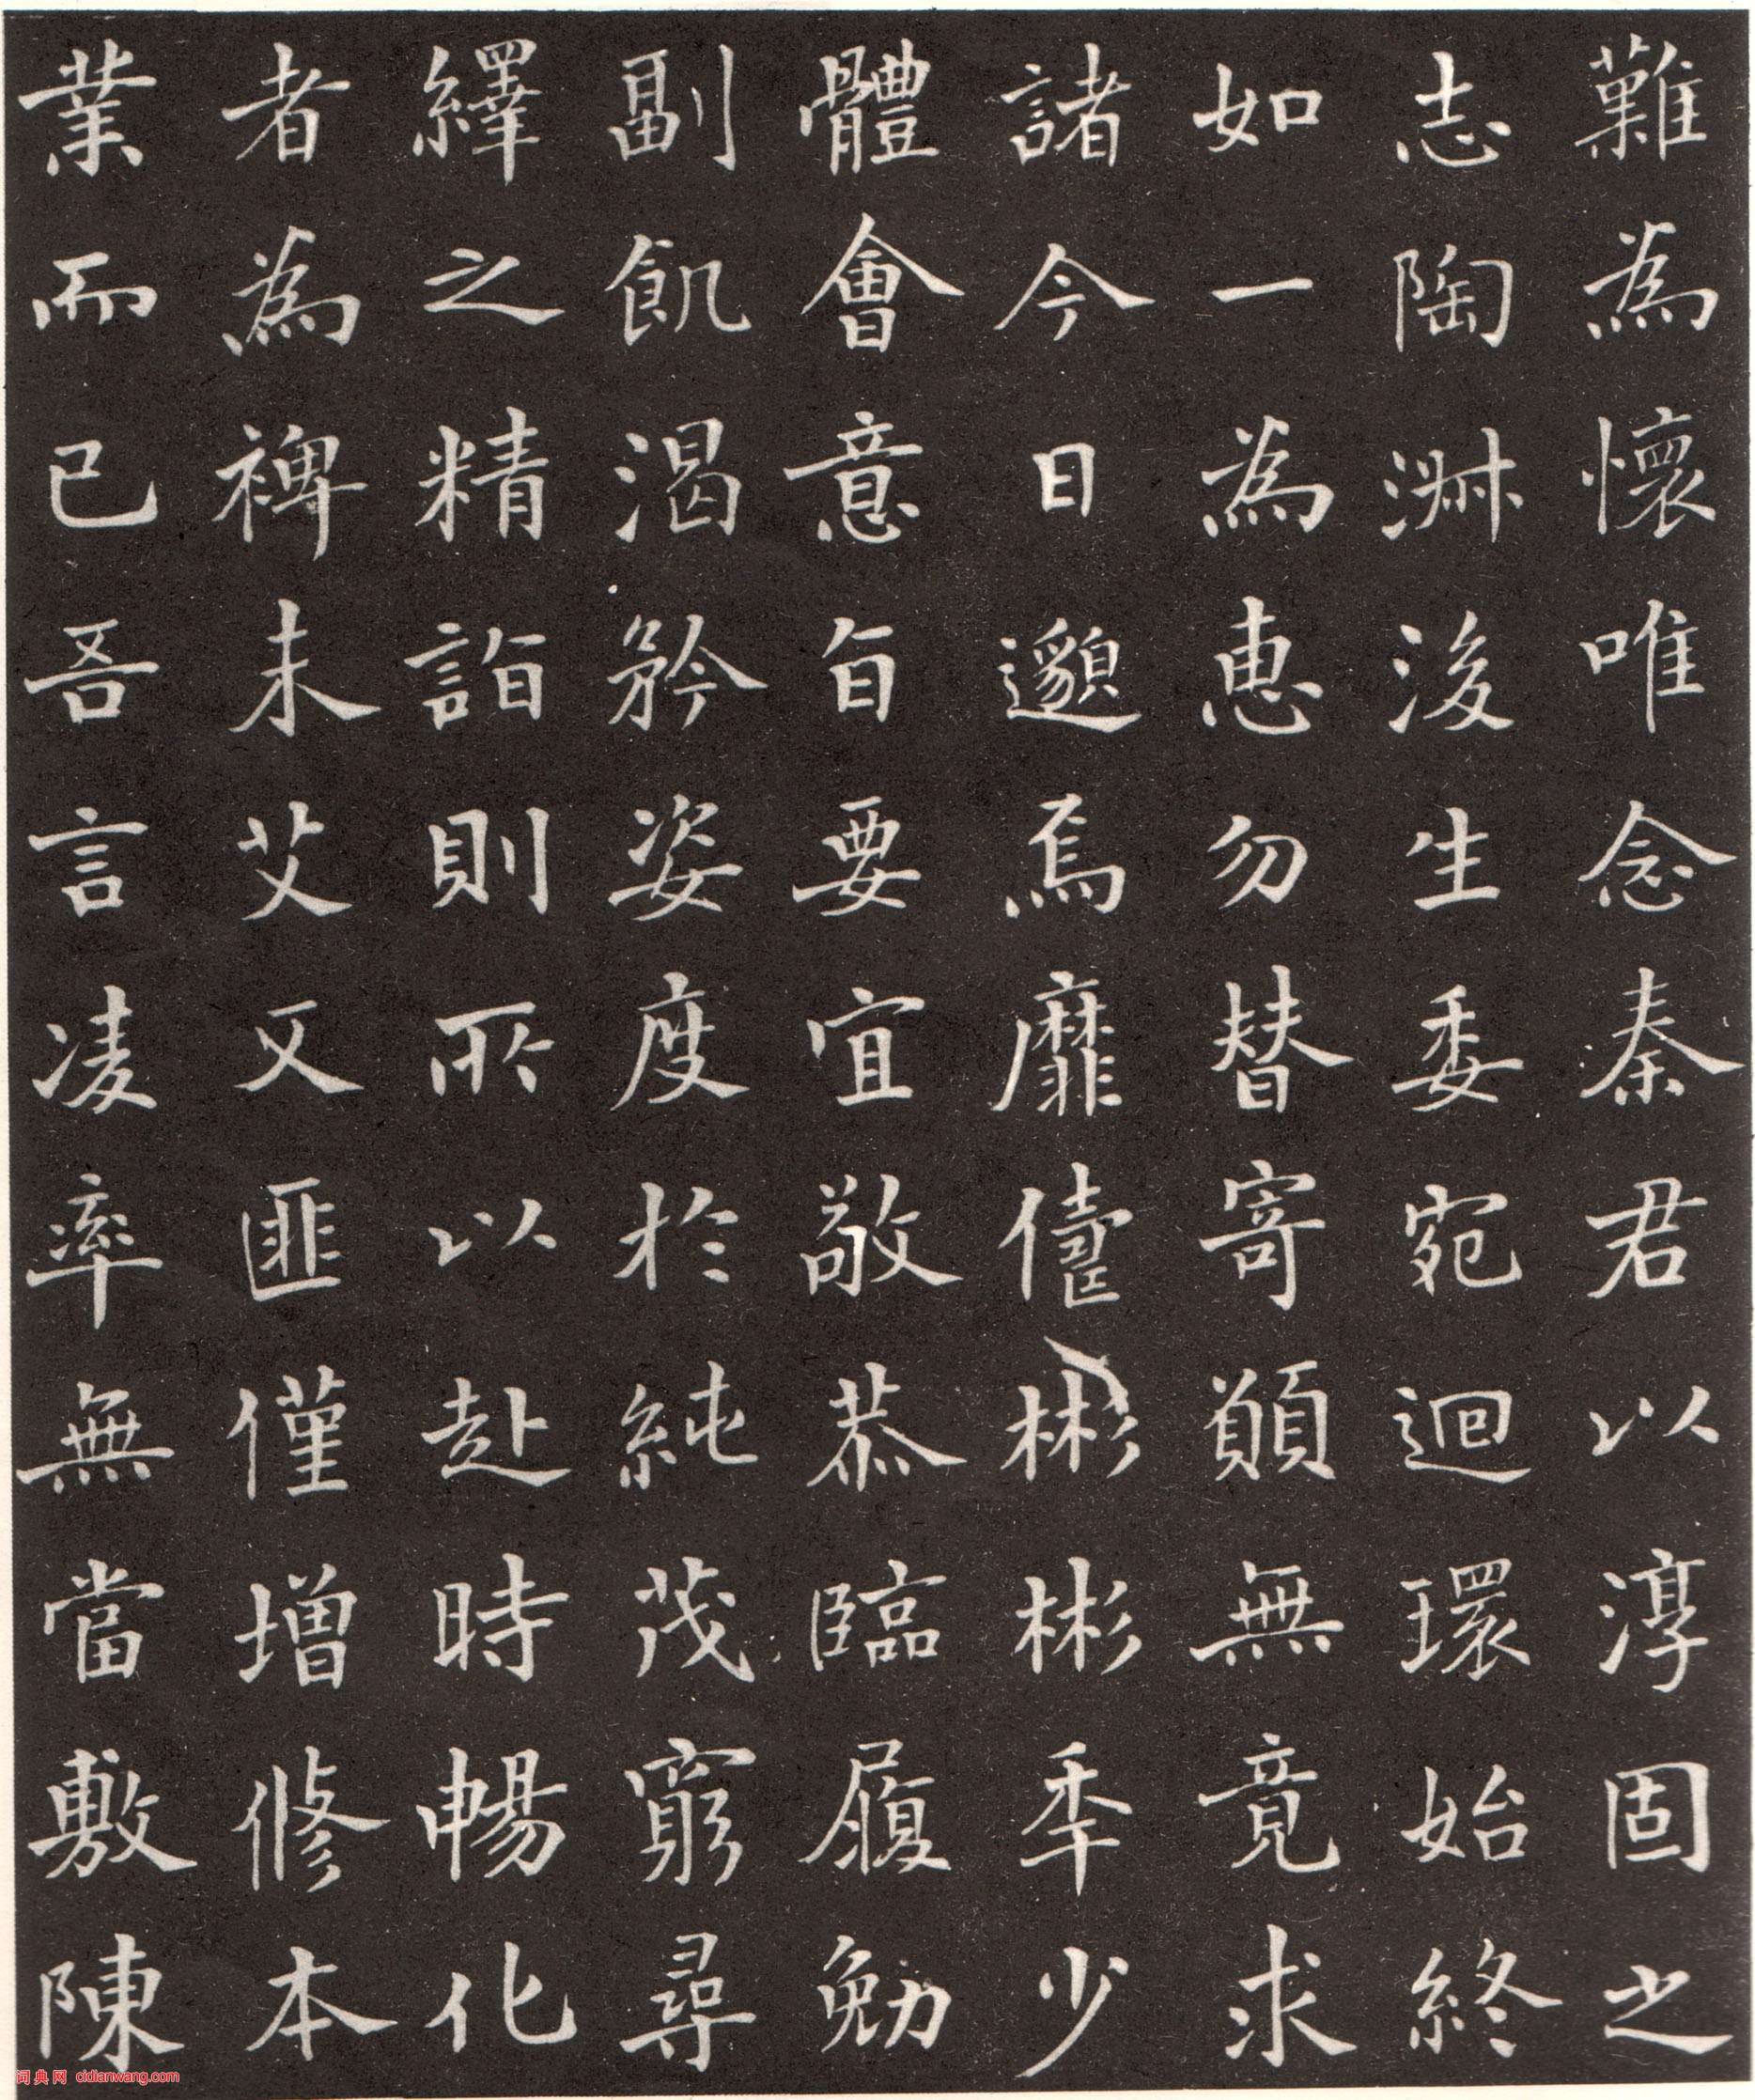 難為懷唯念秦君以淳固之
志陶淑後生委宛迴環始終
如一為惠勿替寄願無竟求
諸今日邈焉靡儔彬彬秊少
體會意旨要宜敬恭臨履勉
副飢渴矜姿度於純茂窮尋
繹之精詣則所以赴時暢化
者為裨未艾又匪僅增修本
業而已吾言凌率無當敷陳
词典网 cidianwang.com